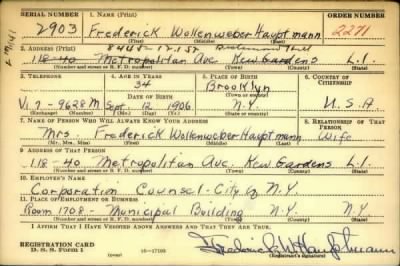 SERIAL NUMBER 1. NAME (Print) ORDER NUMBER
2903 Frederick Wollenweber Hauptmann 2271
(First) (Middle) (Last)
2. ADDRESS (Print) 8448-121 St
118-40 Metropolitan Ave. Kew Gardens L.I.
(Number and street or R. F. D. number) (Town) (County) (State)
3. TELEPHONE 4. AGE IN YEARS 5. PLACE OF BIRTH 6. COUNTRY OF CITIZENSHIP
34 Brooklyn
DATE OF BIRTH (Town or county)
Vi. 7-9628M Sept. 12 1906 N.Y. U.S.A
(Exchange) (Number) (Mo.) (Day) (Yr.) (State or country)
7. NAME OF PERSON WHO WILL ALWAYS KNOW YOUR ADDRESS 8. RELATIONSHIP OF THAT PERSON
Mrs Frederick Wollenweber Hauptmann Wife
(Mr., Mrs., Miss) (First) (Middle) (Last)
9. ADDRESS OF THAT PERSON
118-40 Metropolitan Ave. Kew Gardens L.I.
(Number and street or R. F. D. number) (Town) (County) (State)
10. EMPLOYER'S NAME
Corporation Counsel-City of N.Y.
11. PLACE OF EMPLOYMENT OR BUSINESS
Room 1708-Municipal Building N.Y. N.Y.
(Number and street or R. F. D. number) (Town) (County) (State)
I AFFIRM THAT I HAVE VERIFIED ABOVE ANSWERS AND THAT THEY ARE TRUE.
REGISTRATION CARD
D. S. S. Form 1 16-17105 Frederick W Hauptmann
(Registrant's signature)